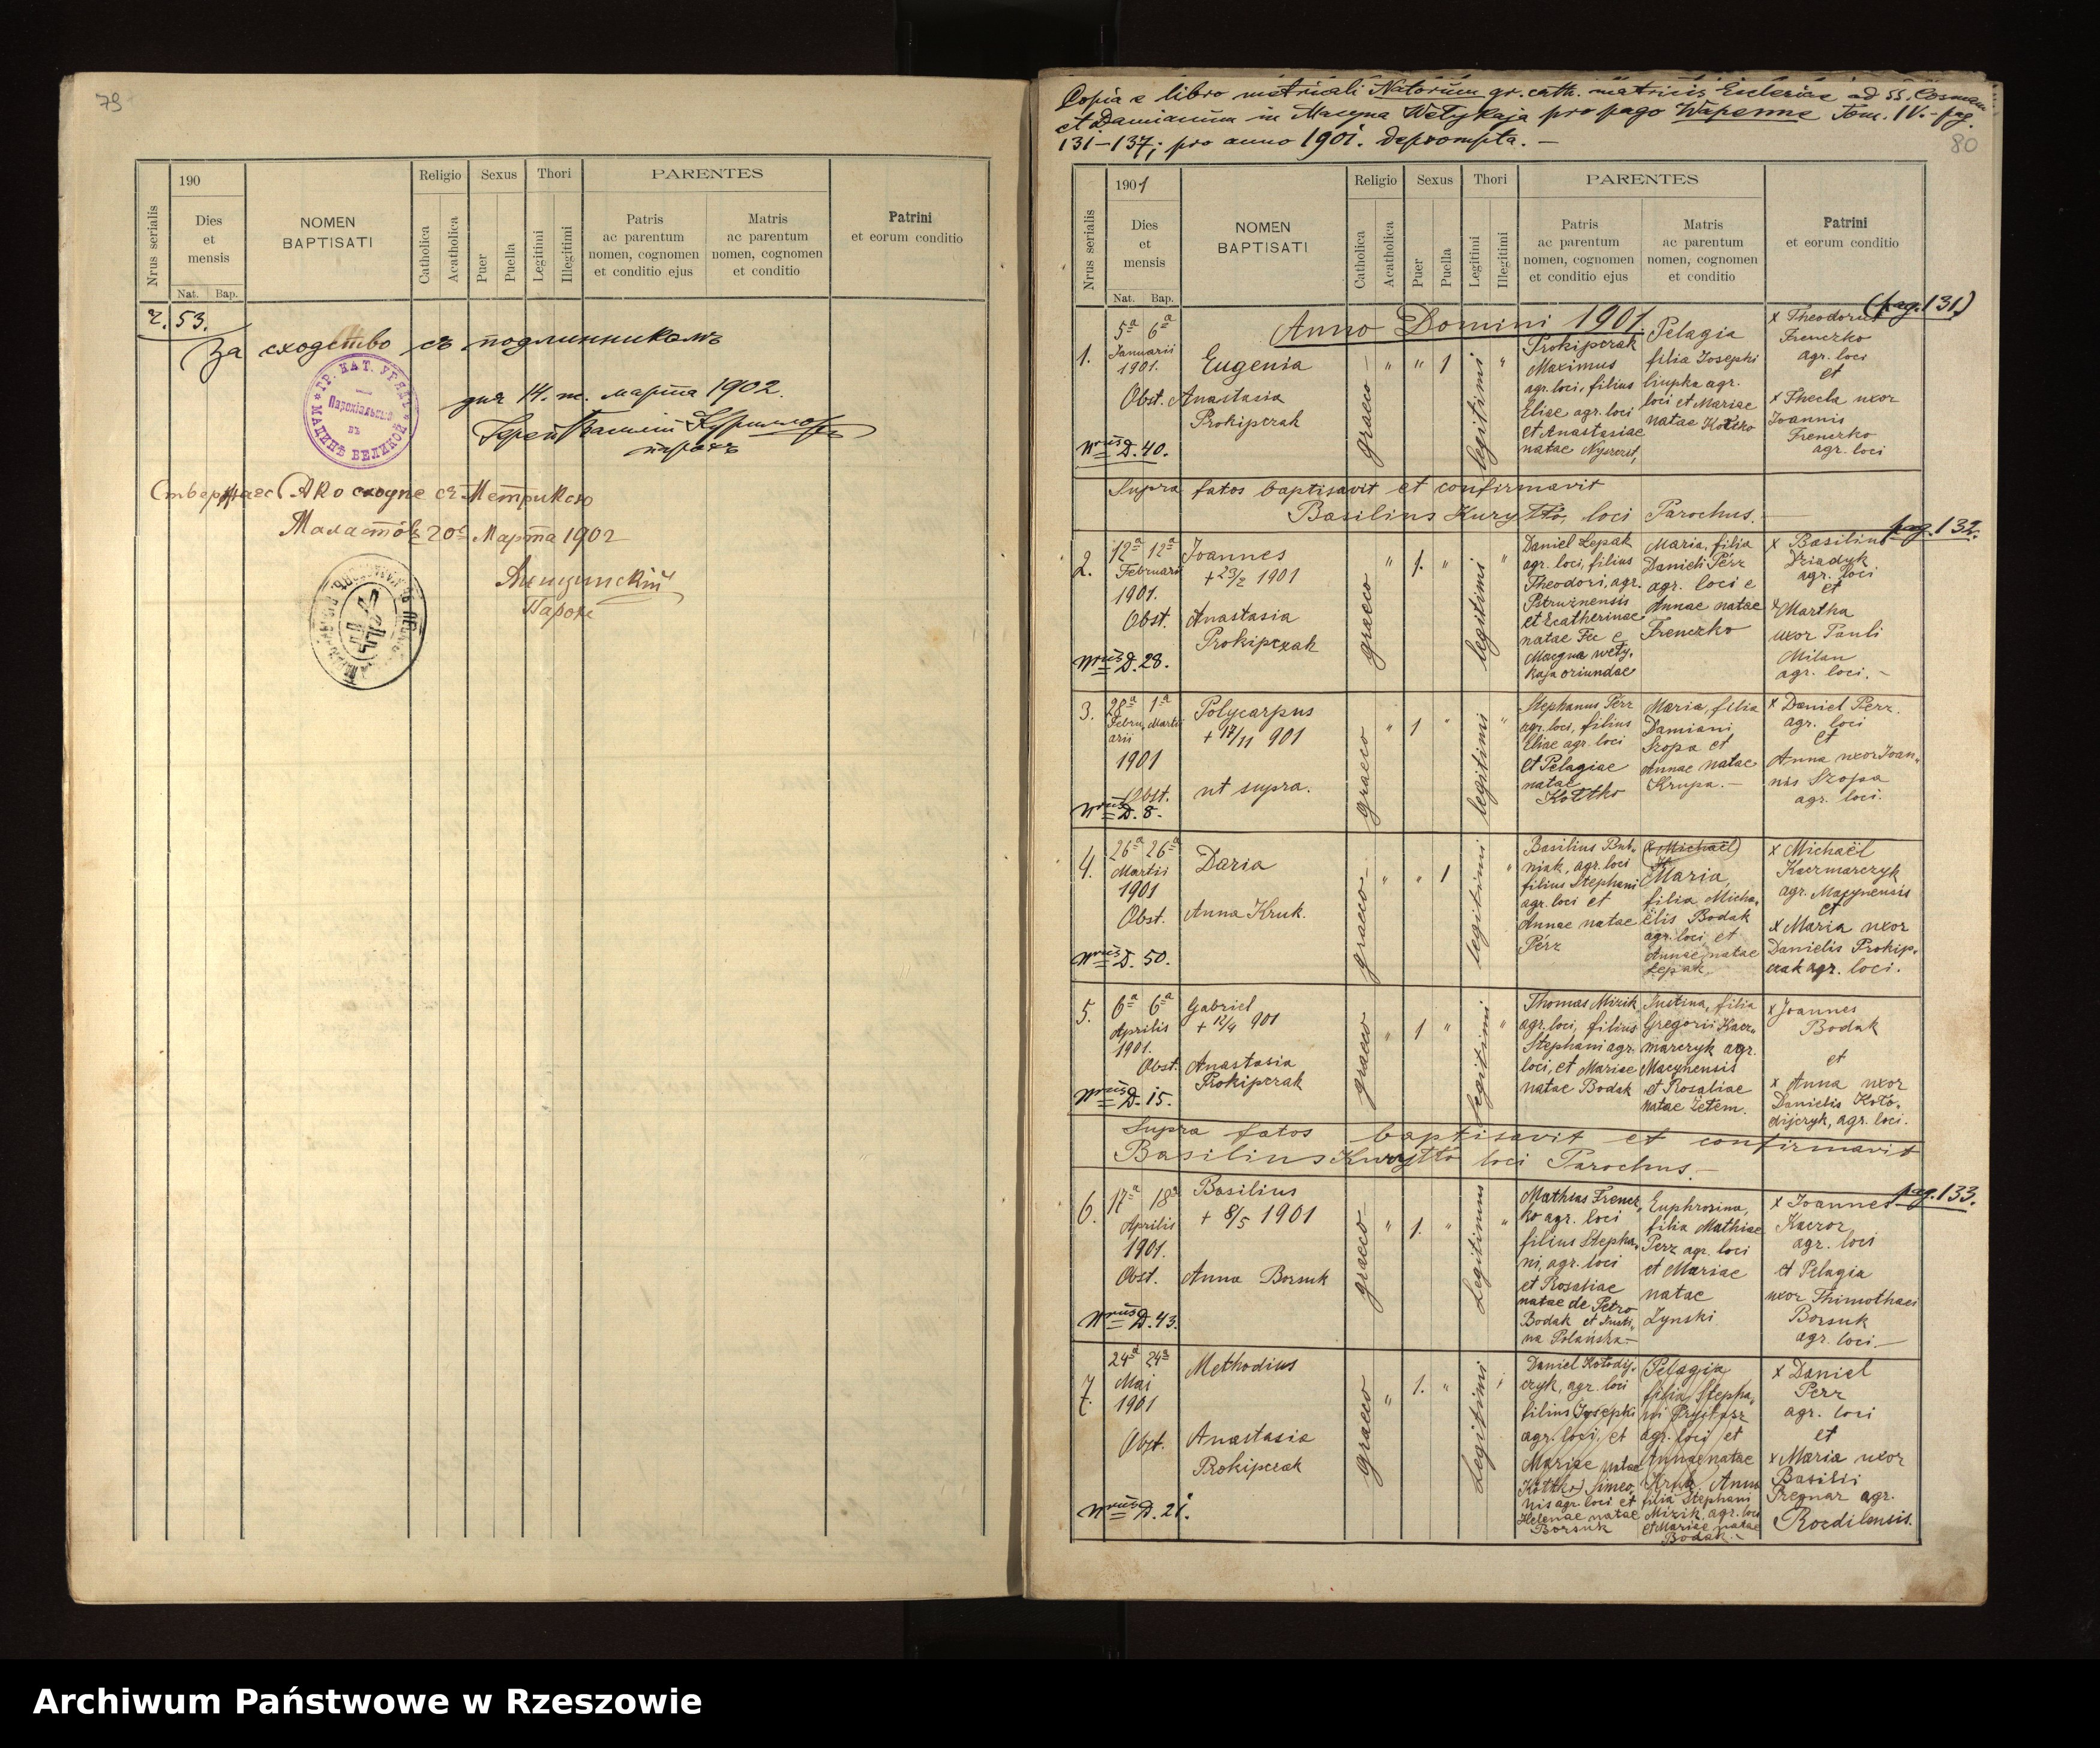 79
190
Nrus serialis
Dies
et
mensis
Nat. Bap.
NOMEN
BAPTISATI
Religio
Catholica
Acatholica
Sexus
Puer
Puella
Thori
Legitimi
Illegitimi
PARENTES
Patris
ac parentum
nomen, cognomen
et conditio ejus
Matris
ac parentum
nomen, cognomen
et conditio
Patrini
et eorum conditio
Ч. 53.
За сходство съ подлинникомъ
дня 14. м. марта 1902.
Іерей Василій Курилло
парохъ
ГР. КАТ. УРЯДЪ
Парохіальный
въ
МАЦИНѢ ВЕЛИКОЙ
Стверджаесь яко сходне съ Метрикою
Маластôвъ 20 Марта 1902
Парохъ
Copia e libro metricali Natorum gr. cath. matricis Ecclesiae ad SS. Cosmam
et Damianum in Macyna Wełykaja pro pago Wapenne Tom. IV. pag.
131–137; pro anno 1901. deprompta.—
80
1901
Nrus serialis
Dies
et
mensis
Nat. Bap.
NOMEN
BAPTISATI
Religio
Catholica
Acatholica
Sexus
Puer
Puella
Thori
Legitimi
Illegitimi
PARENTES
Patris
ac parentum
nomen, cognomen
et conditio ejus
Matris
ac parentum
nomen, cognomen
et conditio
Patrini
et eorum conditio
Anno Domini 1901.
(pag. 131.)
1.
5ª 6ª
Januarii
1901.
Eugenia
Obst. Anastasia
Prokipczak
Nrus D. 40.
graeco
" " 1
legitimi "
Prokipczak
Maximus
agr. loci, filius
Eliae agr. loci
et Anastasiae
natae
Pelagia
filia Josephi
agr.
loci et Mariae
natae
x Theodorus
Frenczko
agr. loci
et
x Thecla uxor
Joannis
Frenczko
agr. loci
Supra fatos baptisavit et confirmavit
Basilius Kuryłło, loci Parochus.
pag. 132.
2.
12ª 12ª
Februarii
1901.
Joannes
+ 23/2 1901
Obst. Anastasia
Prokipczak
Nrus D. 28.
graeco
" 1. "
legitimi "
Daniel Łepak
agr. loci, filius
Theodori, agr.
et Ecatherinae
natae Fec e
Macyna wely-
kaja oriundae
Maria, filia
Danieli Perz
agr. loci e
Annae natae
Frenczko
x Basilius
Dziadyk
agr. loci
et
x Martha
uxor Pauli
Milan
agr. loci.–
3.
28ª 1ª
Febru- Martii
arii
1901
Polycarpus
+ 17/11 901
Obst. ut supra.
Nrus D. 8.
graeco
" 1 "
legitimi "
Stephanus Perz
agr. loci, filius
Eliae agr. loci
et Pelagiae
natae
Maria, filia
Damiani
Szopa et
Annae natae
Krupa.–
x Daniel Perz.
agr. loci
et
Anna uxor Joan-
nis Szopa
agr. loci.
4.
26ª 26ª
Martii
1901
Daria
Obst. Anna Kruk.
Nrus D. 50.
graeco
" " 1
legitimi "
Basilius Bub-
niak, agr. loci
filius Stephani
agr. loci et
Annae natae
Perz
(x Michaël)
Maria,
filia Micha-
ëlis Bodak
agr. loci et
Annae natae
Łepak
x Michaël
Kaczmarczyk
agr. Macynensis
et
x Maria uxor
Danielis Prokip-
czak agr. loci.
5.
6ª 6ª
Aprilis
1901.
Gabriel
+ 12/4 901
Obst. Anastasia
Prokipczak
Nrus D. 15.
graeco
" 1 "
legitimi "
Thomas Mizik
agr. loci, filius
Stephani agr.
loci, et Mariae
natae Bodak
Justina, filia
Gregorii Kacz-
marczyk agr.
Macynensis
et Rosaliae
natae
x Joannes
Bodak
et
x Anna uxor
Danielis Koło-
dijczyk, agr. loci.
Supra fatos baptisavit et confirmavit
Basilius Kuryłło loci Parochus.–
pag. 133.
6.
17ª 18ª
Aprilis
1901.
Basilius
+ 8/5 1901
Obst. Anna Borsuk
Nrus D. 43.
graeco
" 1. "
Legitimus "
Mathias Frencz-
ko agr. loci
filius Stepha-
ni, agr. loci
et Rosaliae
natae de Petro
Bodak et Justi-
na Polańska–
Euphrosina,
filia Mathiae
Perz agr. loci
et Mariae
natae
Zynski
x Joannes
Kaczor
agr. loci
et Pelagia
uxor Thimothaei
Borsuk
agr. loci.–
7.
24ª 24ª
Mai
1901
Methodius
Obst. Anastasia
Prokipczak
Nrus D. 21.
graeco
" 1. "
Legitimi
Daniel Kołodij-
czyk, agr. loci
filius Josephi
agr. loci, et
Mariae natae
Simeo-
nis agr. loci et
Helenae natae
Borsuk
Pelagia
filia Stepha-
ni
agr. loci et
Annae natae
Kruk, Anna
filia Stephani
Mizik, agr. loci
et Mariae natae
Bodak.–
x Daniel
Perz
agr. loci
et
x Maria uxor
Basilii
Pregnar agr.
Rozdilensis.
Archiwum Państwowe w Rzeszowie